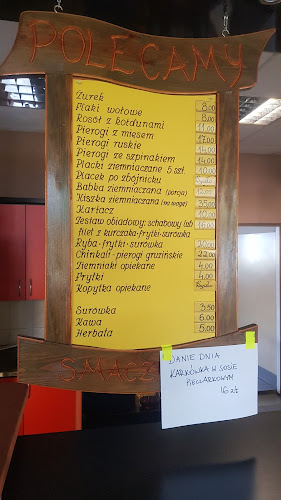 POLECAMY
Żurek
Flaki wołowe 8.00
Rosół z kołdunami 8.00
Pierogi z mięsem
Pierogi ruskie 17.00
Pierogi ze szpinakiem
Placki ziemniaczane 5 szt. 14.00
Placek po zbójnicku
Babka ziemniaczana (porcja)
Kiszka ziemniaczana (na wagę)
Kartacz
Zestaw obiadowy: schabowy lub
filet z kurczaka-frytki-surówka
Ryba-frytki-surówka
Chinkali-pierogi gruzińskie 22.00
Ziemniaki opiekane 4.00
Frytki 4.00
Kopytka opiekane
Surówka 3.50
Kawa 6.00
Herbata 5.00
SMACZ
DANIE DNIA
KARKÓWKA W SOSIE
PIECZARKOWYM
16 zł